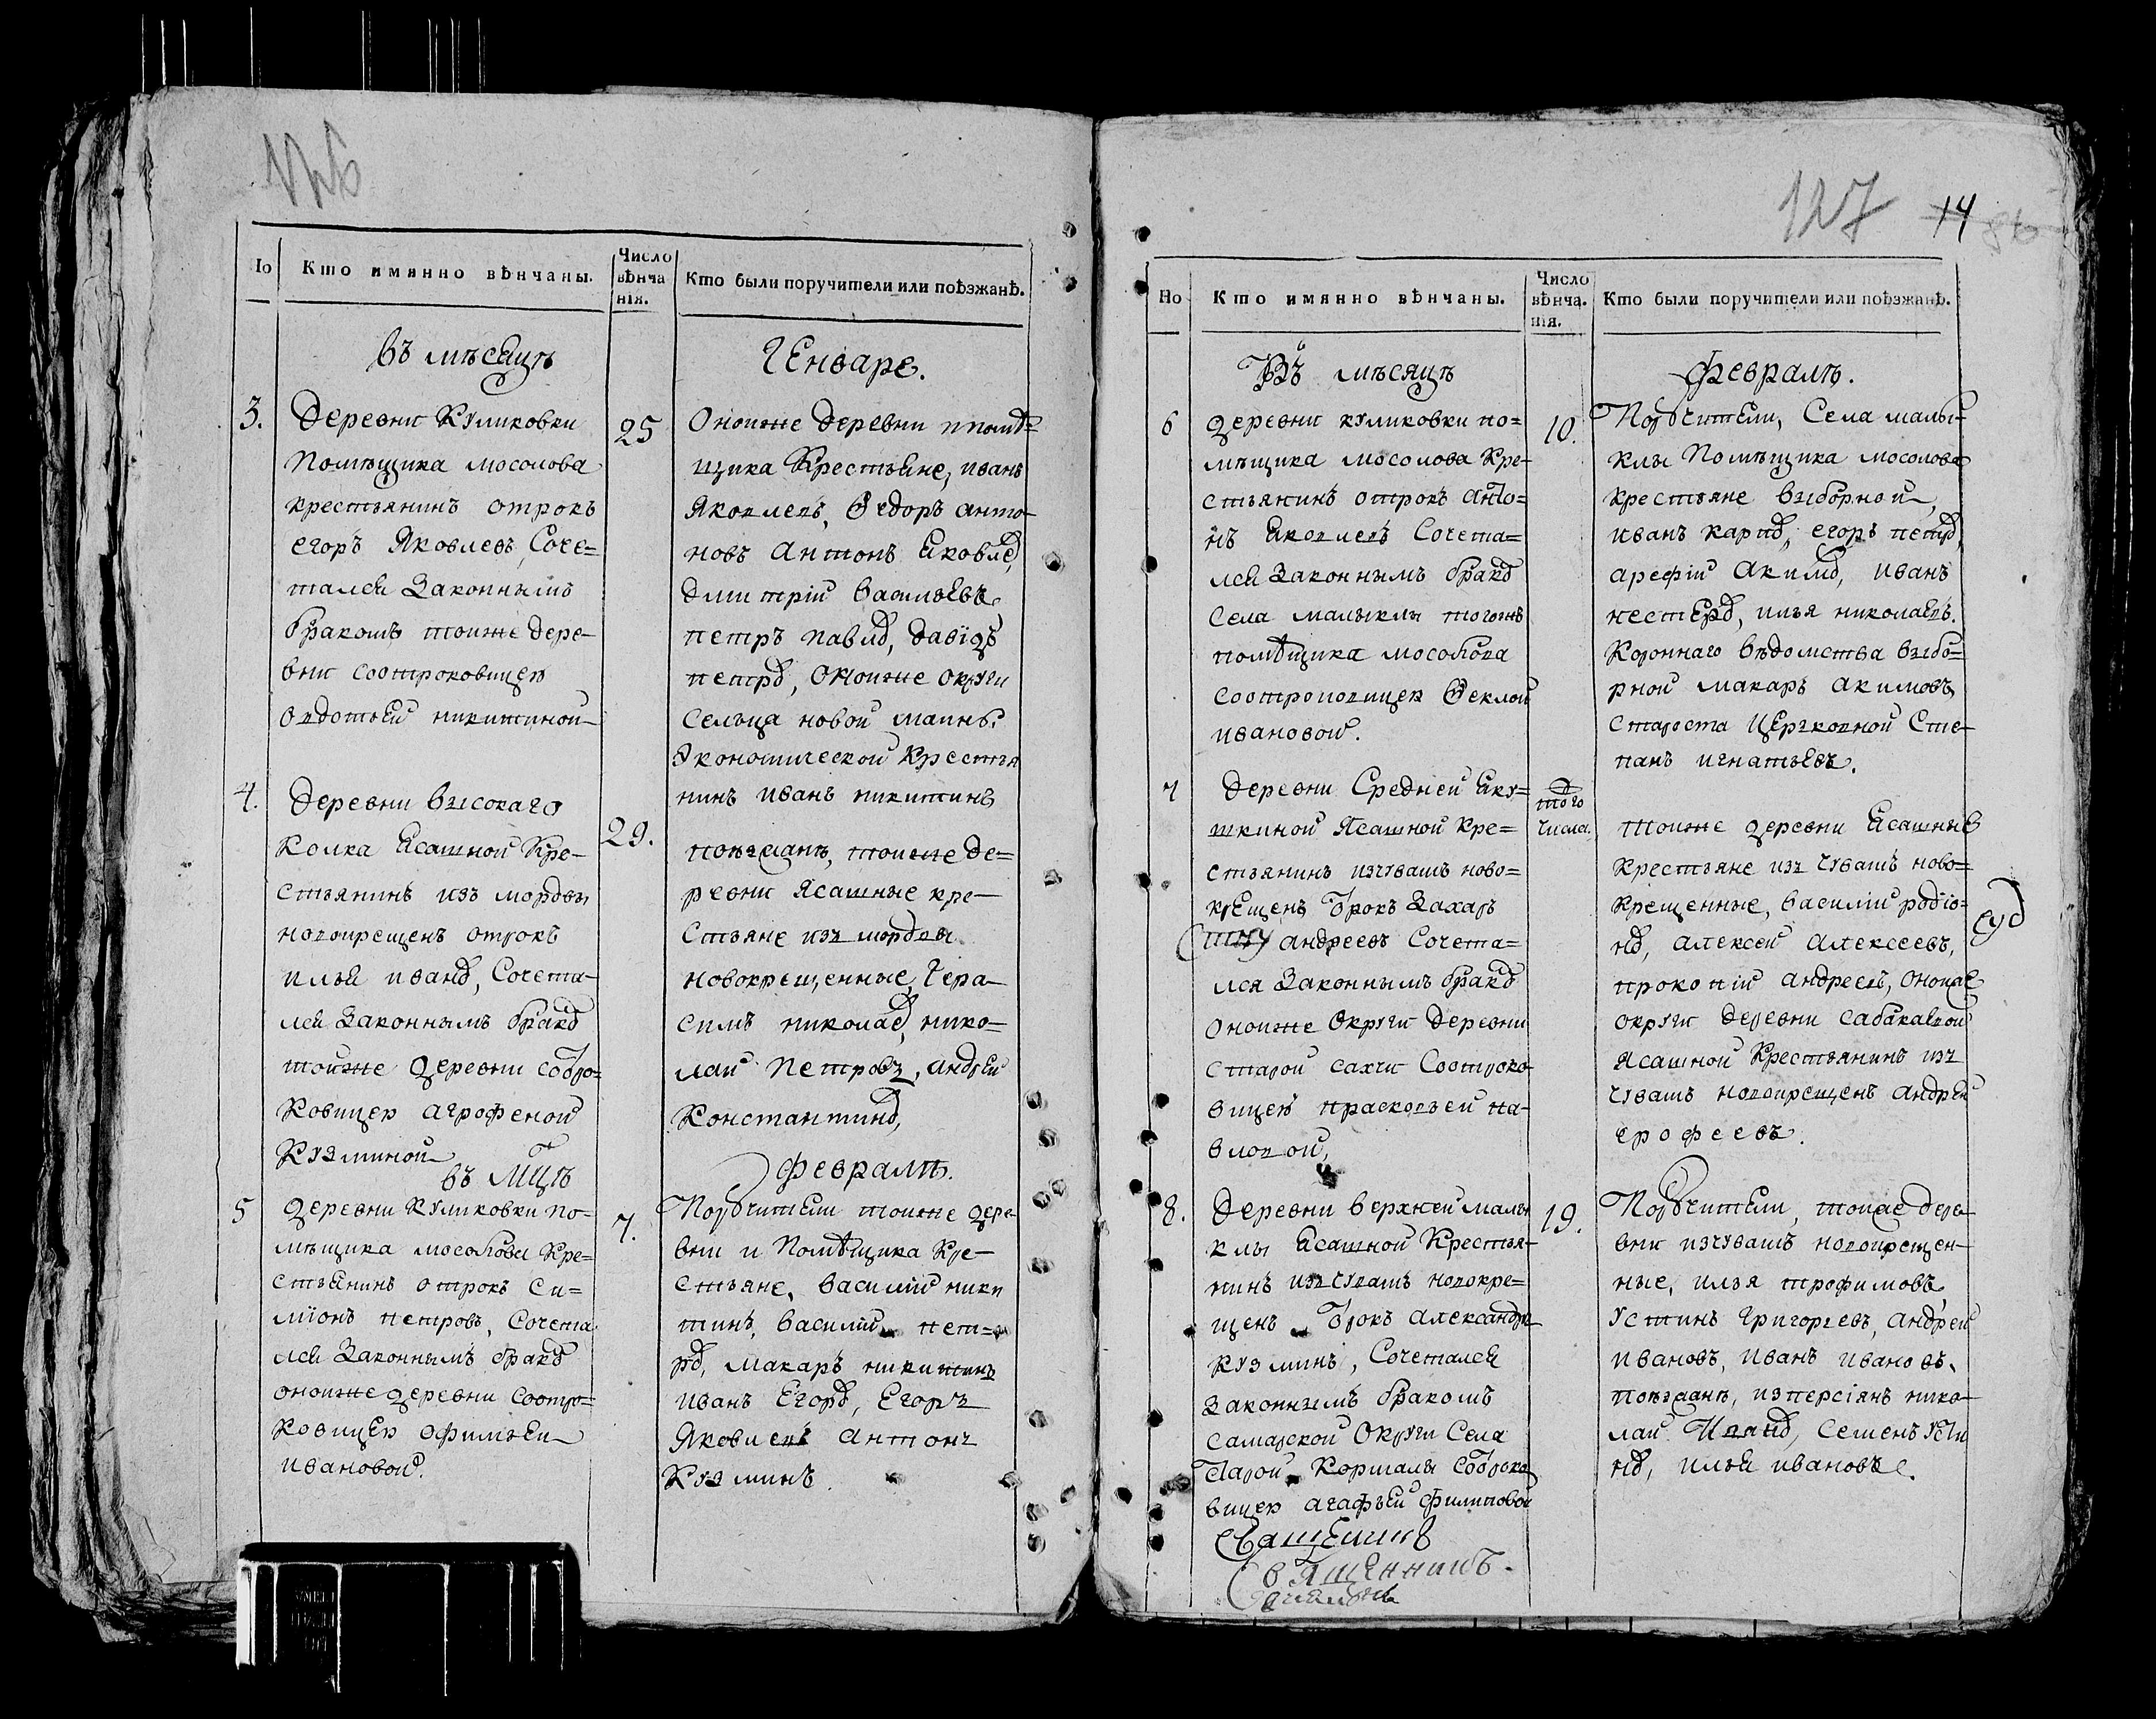 126
Но
Кто имянно вѣнчаны.
Число
вѣнча
нія.
Кто были поручители или поѣзжанѣ.
въ мѣсяцѣ
Генваре.
3.
деревни куликовки
помѣщика мосолова
крестьянинъ отрокъ
егоръ Яковлевъ, Соче=
тался Законнымъ
бракомъ тоиже дере-
вни соотроковицею
овдотьей никитиной
25
Оноиже деревни ипомѣ=
щика Крестьяне, иванъ
Яковлевъ, Ѳедоръ анто-
новъ Антонъ Яковле,
дмитрій васильевъ,
петръ павло, давидъ
петро, оноиже округи
Сельца новой маины
Экономической Крестья
нинъ иванъ никитинъ
4.
деревни высокаго
Колка Ясашной Кре-
стьянинъ изъ мордвы
новокрещенъ отрокъ
илья ивано, Сочета-
лся Законнымъ брако
тоиже деревни сотро=
ковицею агрофеной
Кузминой
29.
поѣзжанѣ, тоиже де=
ревни Ясашные кре-
стьяне изъ мордвы
новокрещенные, Гера-
симъ никола, нико-
лаи Петровъ, андреи
Константино,
въ мцѣ
февралѣ.
5
деревни куликовки по-
мѣщика мосолова Кре=
стьянинъ отрокъ Си=
міонъ петровъ, Сочета
лся Законнымъ брако
оноиже деревни соотро=
ковицею офимьеи
ивановой.
7.
Поручители тоиже дере-
вни и Помѣщика Кре-
стьяне, василіи ники
тинъ, василіи пет=
ро, макаръ никитинъ
иванъ Егоро, Егоръ
Яковлевъ антонъ
Кузминъ.
127
14
86
Но
Кто имянно вѣнчаны.
Число
вѣнча.
нія.
Кто были поручители или поѣзжанѣ.
Въ мѣсяцѣ
февралѣ.
6
деревни куликовки по=
мѣщика мосолова Кре-
стьянинъ отрокъ анто=
нъ Яковлевъ Сочета=
лся Законнымъ брако
Села малыклы тогожъ
помѣщика мосолова
соотроковицею Ѳеклой
ивановой.
10.
Поручители, Села малы-
клы Помѣщика мосолова
крестьяне выборной,
иванъ карпо, егоръ петро,
арефіи акимо, иванъ
нестеро, илья николаевъ.
Короннаго вѣдомства выбо=
рной макаръ акимовъ
староста Церковной Сте-
панъ игнатьевъ.
7
деревни Средней Яку=
шкиной Ясашной Кре=
стьянинъ изчувашъ ново=
крещенъ отрокъ Захаръ
андреевъ Сочета=
лся Законнымъ брако
оноиже Округи деревни
старой сахчи Соотроко-
вицей прасковьей па-
вловой,
того
числа.
Тоиже деревни Ясашные
Крестьяне изъ чувашъ ново=
крещенные, василіи родіо-
но, алексей алексеевъ,
прокопіи андреевъ, оноиже
округи деревни сабакаевой
Ясашной Крестьянинъ изъ
чувашъ новокрещенъ андреи
ерофеевъ.
8.
деревни верхней малы
клы Ясашной Крестья-
нинъ изъ чувашъ новокре=
щенъ отрокъ александръ
кузминъ, Сочетался
законнымъ бракомъ
самарской Округи Села
Старой Кормалы сотроко
вицею агафьеи филиповой
19.
Поручители, тоиже дере-
вни изчувашъ новокрещен-
ные, илья трофимовъ,
устинъ Григорьевъ, андреи
ивановъ, иванъ ивановъ.
поѣзжанѣ, изперсіянъ нико-
лаи Ивано, Семенъ усти
но, илья ивановъ.
Священникъ